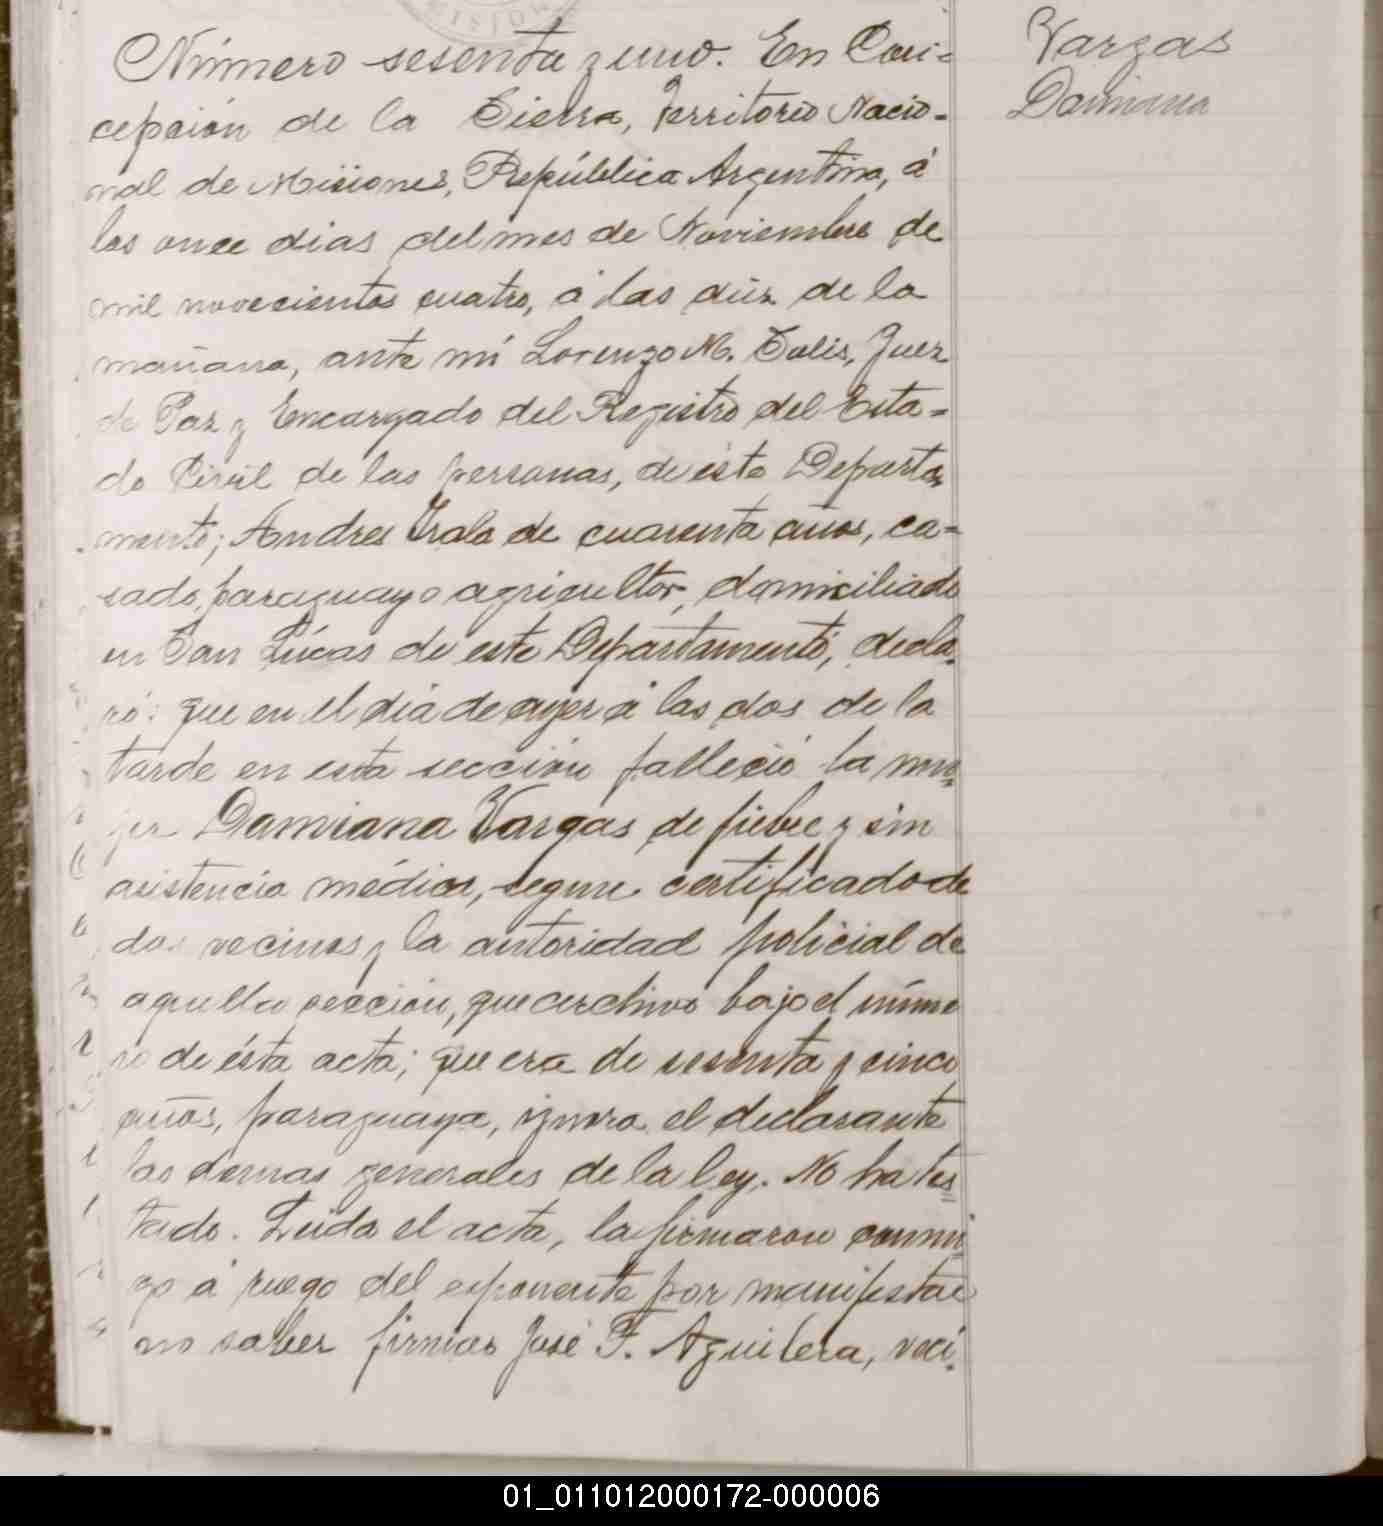 Número sesenta y uno. En Con-
cepción de la Sierra, Territorio Nacio-
nal de Misiones, República Argentina, á
los once dias del mes de Noviembre de
mil novecientos cuatro, á las diez de la
mañana, ante mí Lorenzo M. Solis, Juez
de Paz y Encargado del Registro del Esta-
do Civil de las personas, de éste Departa-
mento; Andres Irala de cuarenta años, ca-
sado, paraguayo agricultor, domiciliado
en San Lúcas de este Departamento, decla-
ró: que en el dia de ayer á las dos de la
tarde en esta sección falleció la mu-
jer Damiana Vargas de fiebre y sin
asistencia médica, segun certificado de
dos vecinos y la autoridad policial de
aquella sección, que archivo bajo el núme
ro de ésta acta; que era de sesenta y cinco
años, paraguaya, ignora el declarante
las demas generales de la ley. No ha tes-
tado. Leida el acta, la firmaron conmi-
go á ruego del esponente por manifestar
no saber firmar José F. Aguilera, veci-
Vargas
Damiana
01_011012000172-000006